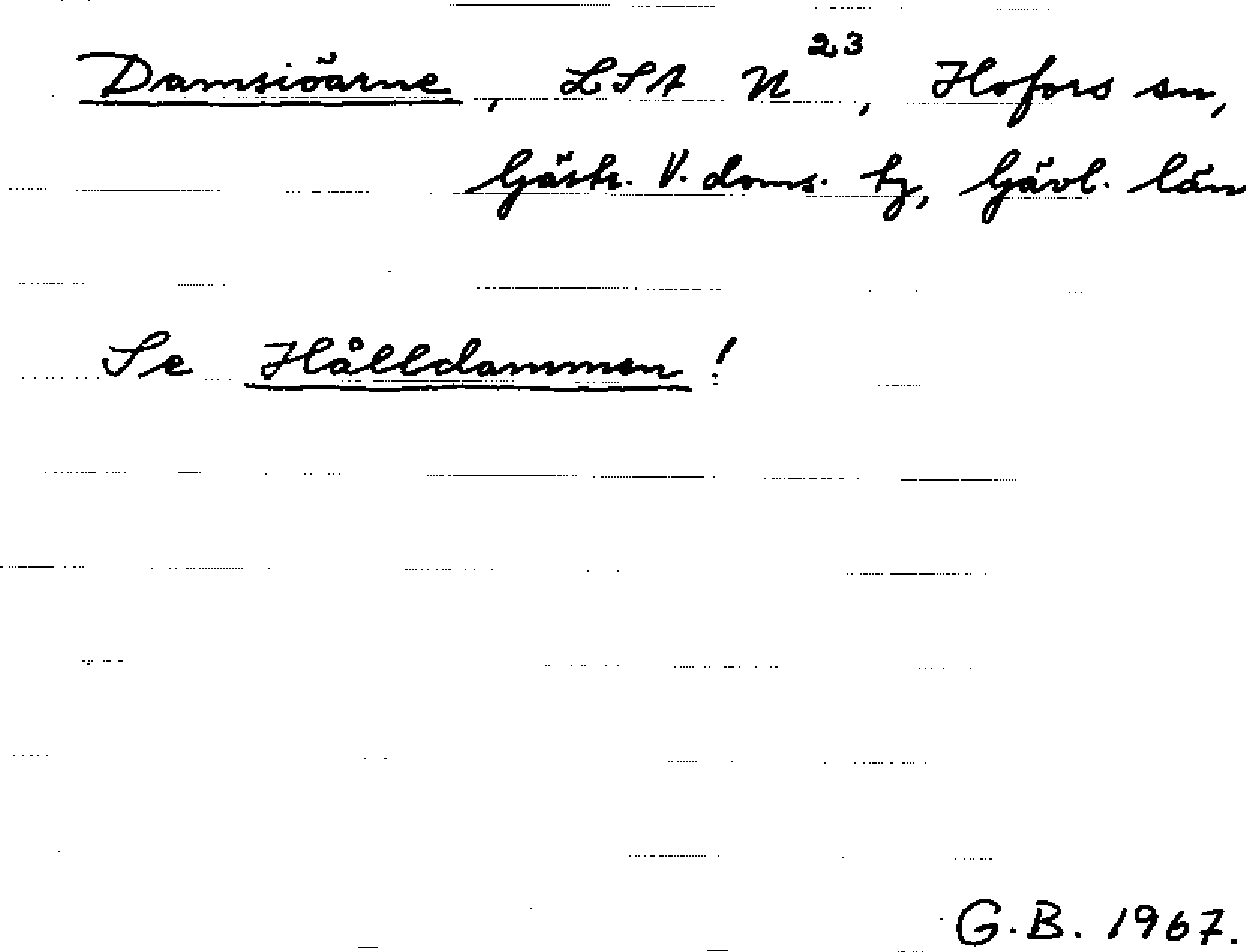 Damsiöarne, LSA N²³, Hofors sn,
Gästr. V. doms. tg, Gävl. län
Se Hålldammen!
G.B. 1967.